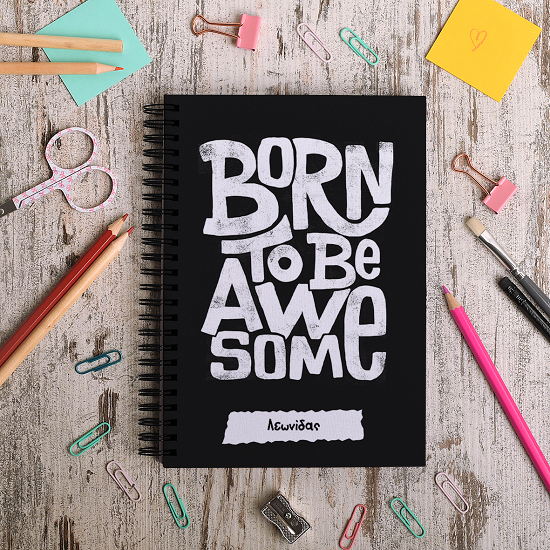 BORN
TO BE
AWE
SOME
Λεωνίδας